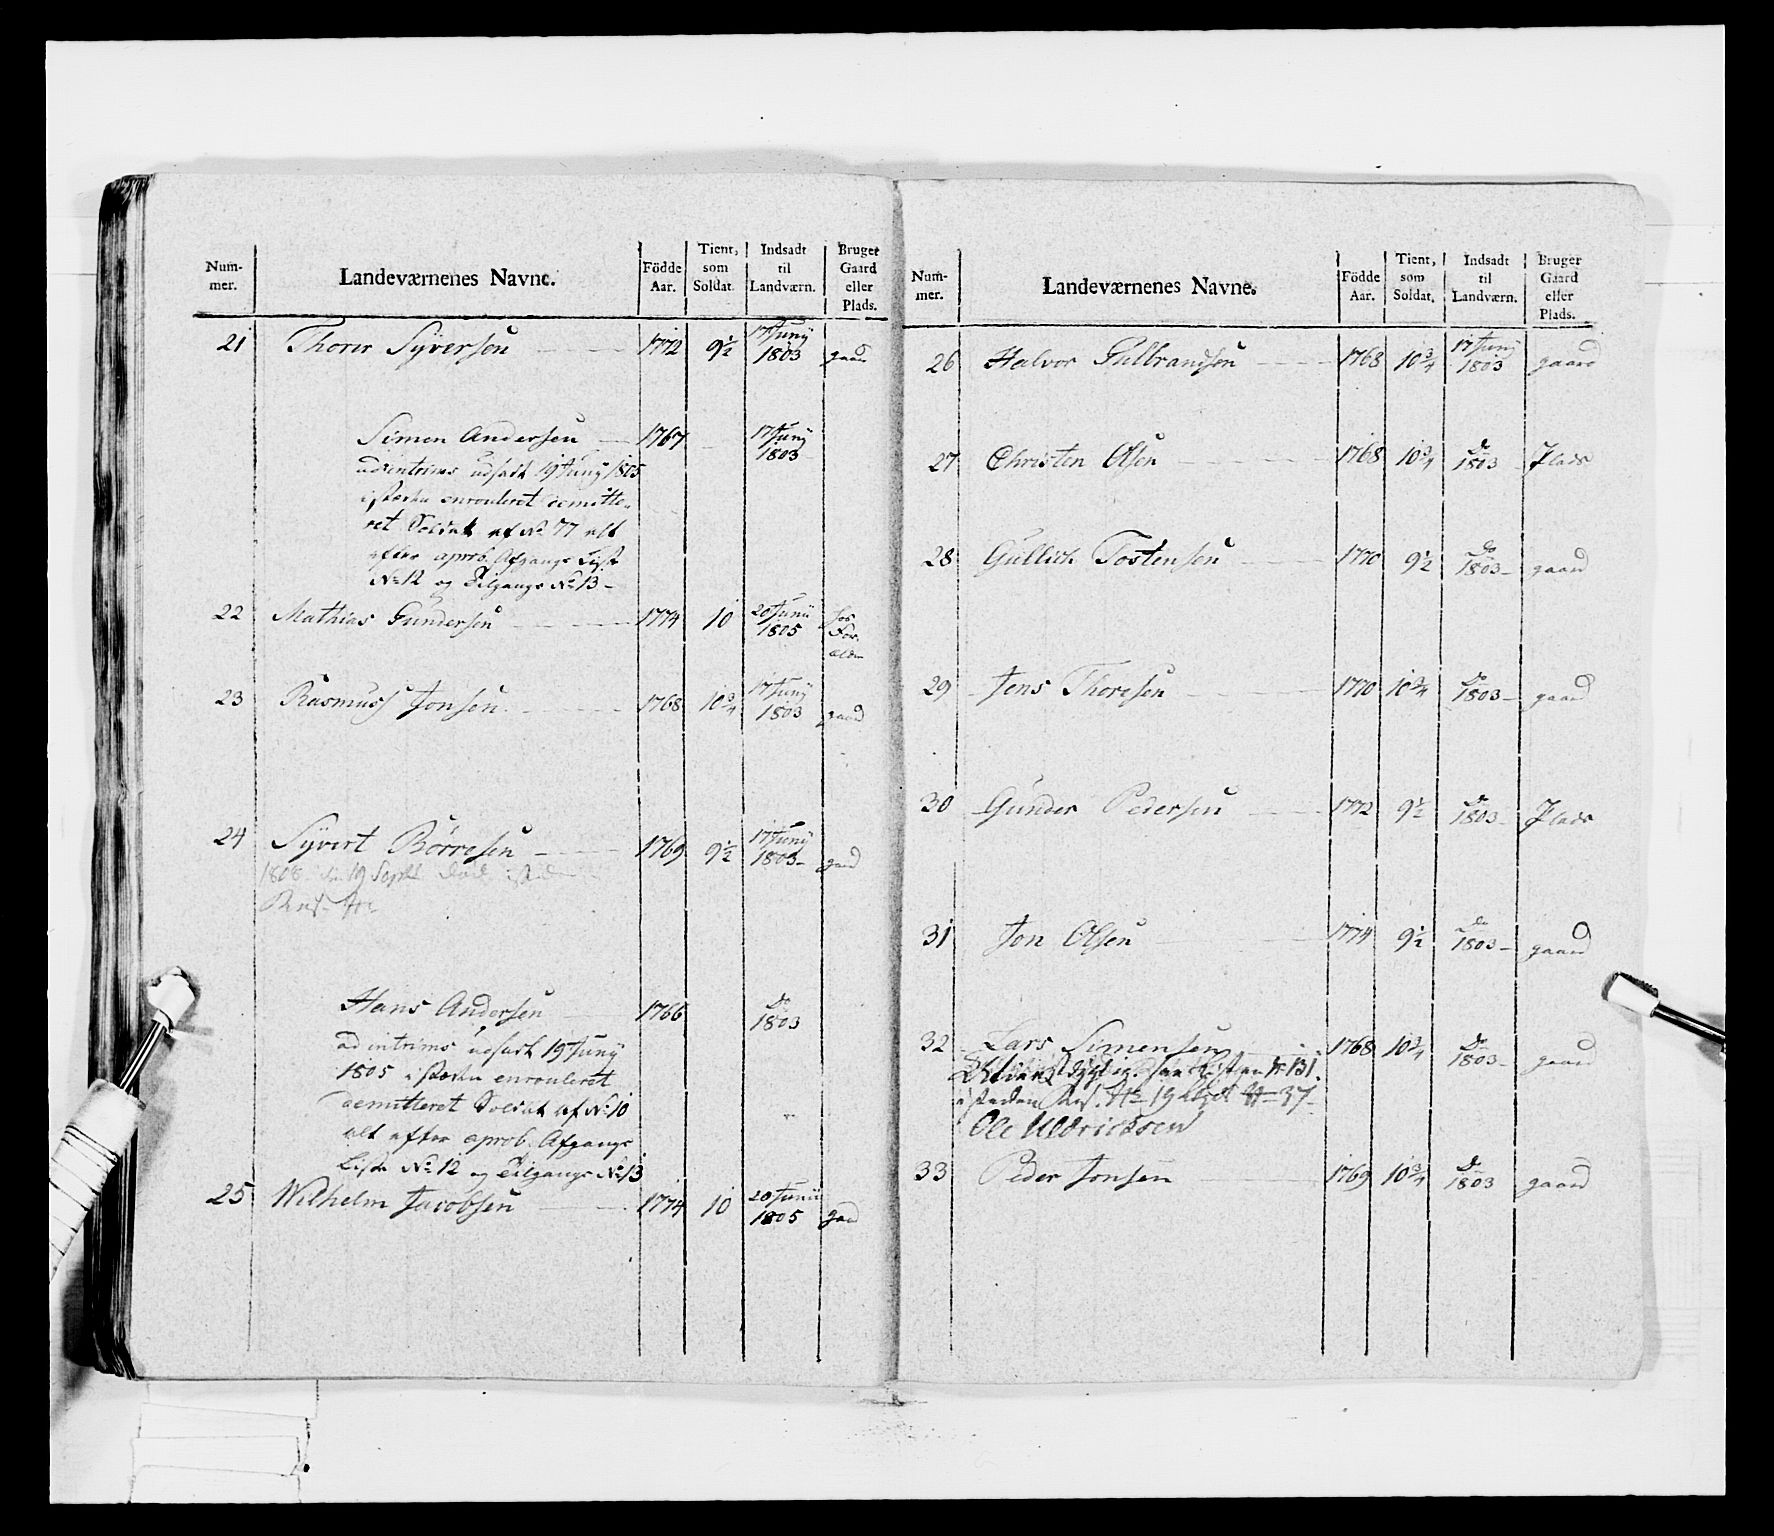 Num-
mer.
Landeværnenes Navne.
Födde
Aar.
Tient,
som
Soldat
Indsadt
til
Landværn.
Bruger
Gaard
eller
Plads.
21 Thorer Syversen 1772 9½ 17 Juny 1803 gaard
Simen Andersen 1767 17 Juny 1803
ad intrims udsadt 19 Juny 1805
i stæden enrouleret demitte-
ret Soldat af No 77 alt
efter aprob. Afgangs Liste
No 12 og Tilgangs No 13
22 Mathias Gundersen 1774 10 20 Junii 1805 hos For- ældr
23 Rasmus Jonsen 1768 10¾ 17 Juny 1803 gaard
24 Syvert Börresen 1769 9½ 17 Juny 1803 gaard
1808 den 19 Septbr Död
Hans Andersen 1766 Do 1803
ad intrims udsadt 19 Juny
1805 i stæden enrouleret
demitteret Soldat af No 10
alt efter aprob. Afgangs
Liste No 12 og Tilgangs No 13
25 Wilhelm Jacobsen 1774 10 20 Junii 1805 gaard
Num-
mer.
Landeværnenes Navne.
Födde
Aar.
Tient,
som
Soldat.
Indsadt
til
Landværn.
Bruger
Gaard
eller
Plads.
26 Halvor Gulbrandsen 1768 10¾ 17 Juny 1803 gaard
27 Christen Olsen 1768 10¾ Do 1803 Plads
28 Gullich Tostensen 1770 9½ Do 1803 gaard
29 Jens Thoresen 1770 10¾ Do 1803 gaard
30 Gunder Pedersen 1772 9½ Do 1803 Plads
31 Jon Olsen 1774 9½ Do 1803 gaard
32 Lars Simensen 1768 10¾ Do 1803 gaard
No 131
i steden No 19 No 37
Ole Uldricksen
33 Peder Jonsen 1769 10¾ Do 1803 gaard